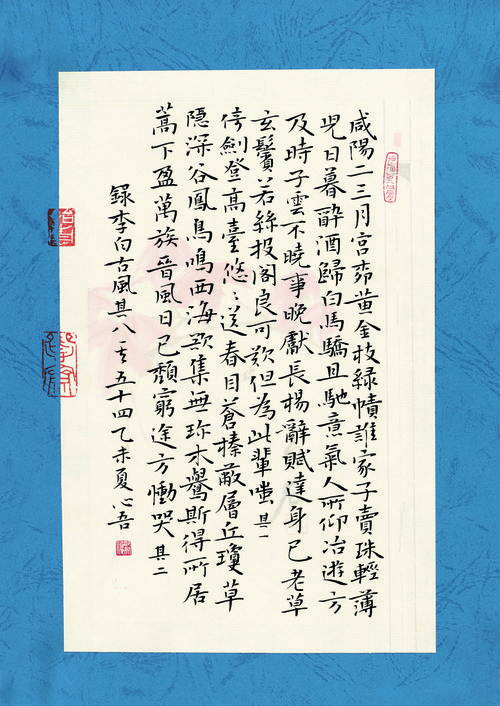 咸陽二三月宮柳黃金枝綠幘誰家子賣珠輕薄
兒日暮醉酒歸白馬驕且馳意氣人所仰冶遊方
及時子雲不曉事晚獻長楊辭賦達身已老草
玄鬢若絲投閣良可歎但為此輩嗤 其一
倚劍登高臺悠〻送春目蒼榛蔽層丘瓊草
隱深谷鳳鳥鳴西海欲集無珍木鸒斯得所居
蒿下盈萬族晉風日已頹窮途方慟哭 其二
錄李白古風其八其五十四乙未夏心吾